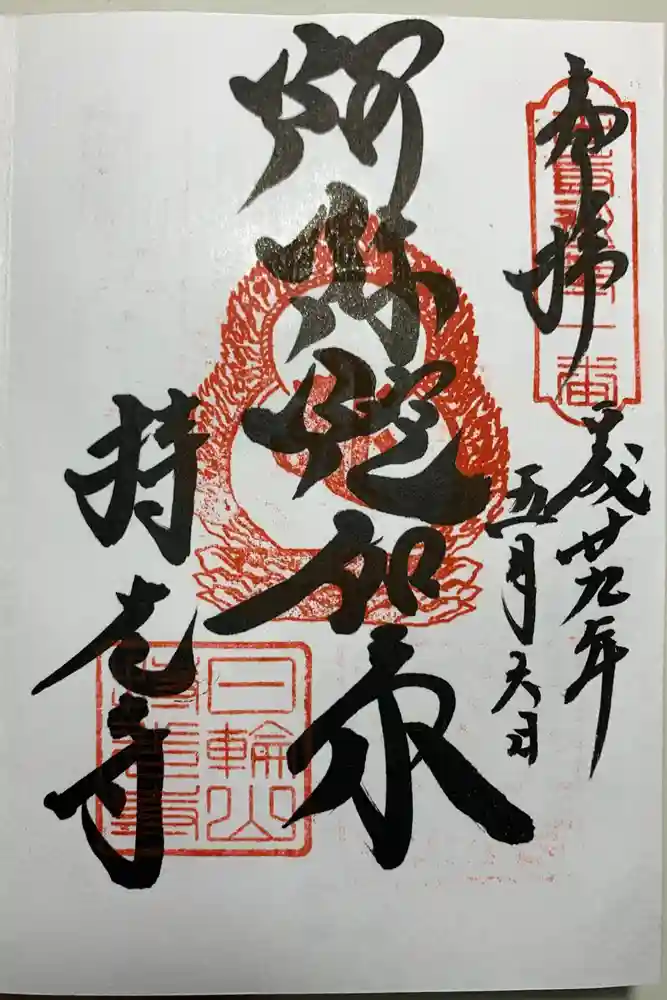 奉拝
平成廿九年
五月六日
阿弥陀如来
持光寺
日輪山
持光寺